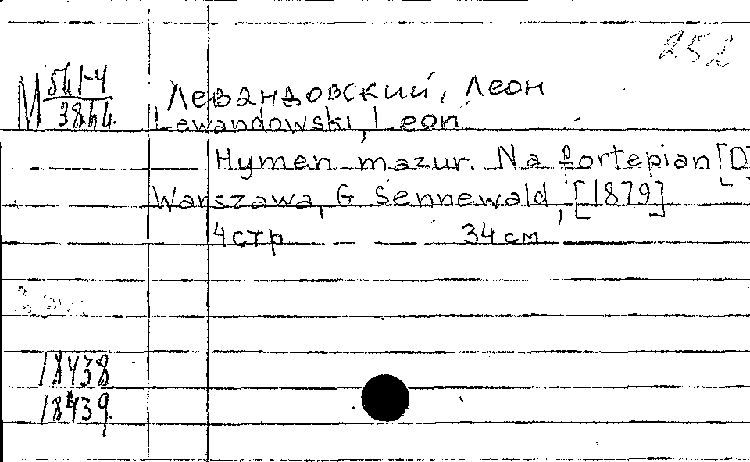 252
Левандовский, Леон
Lewandowski, Leon
Hymen mazur. Na fortepian [D]
Warszawa, G Sennewald, [1879]
4 стр 34 см
18438
18439.